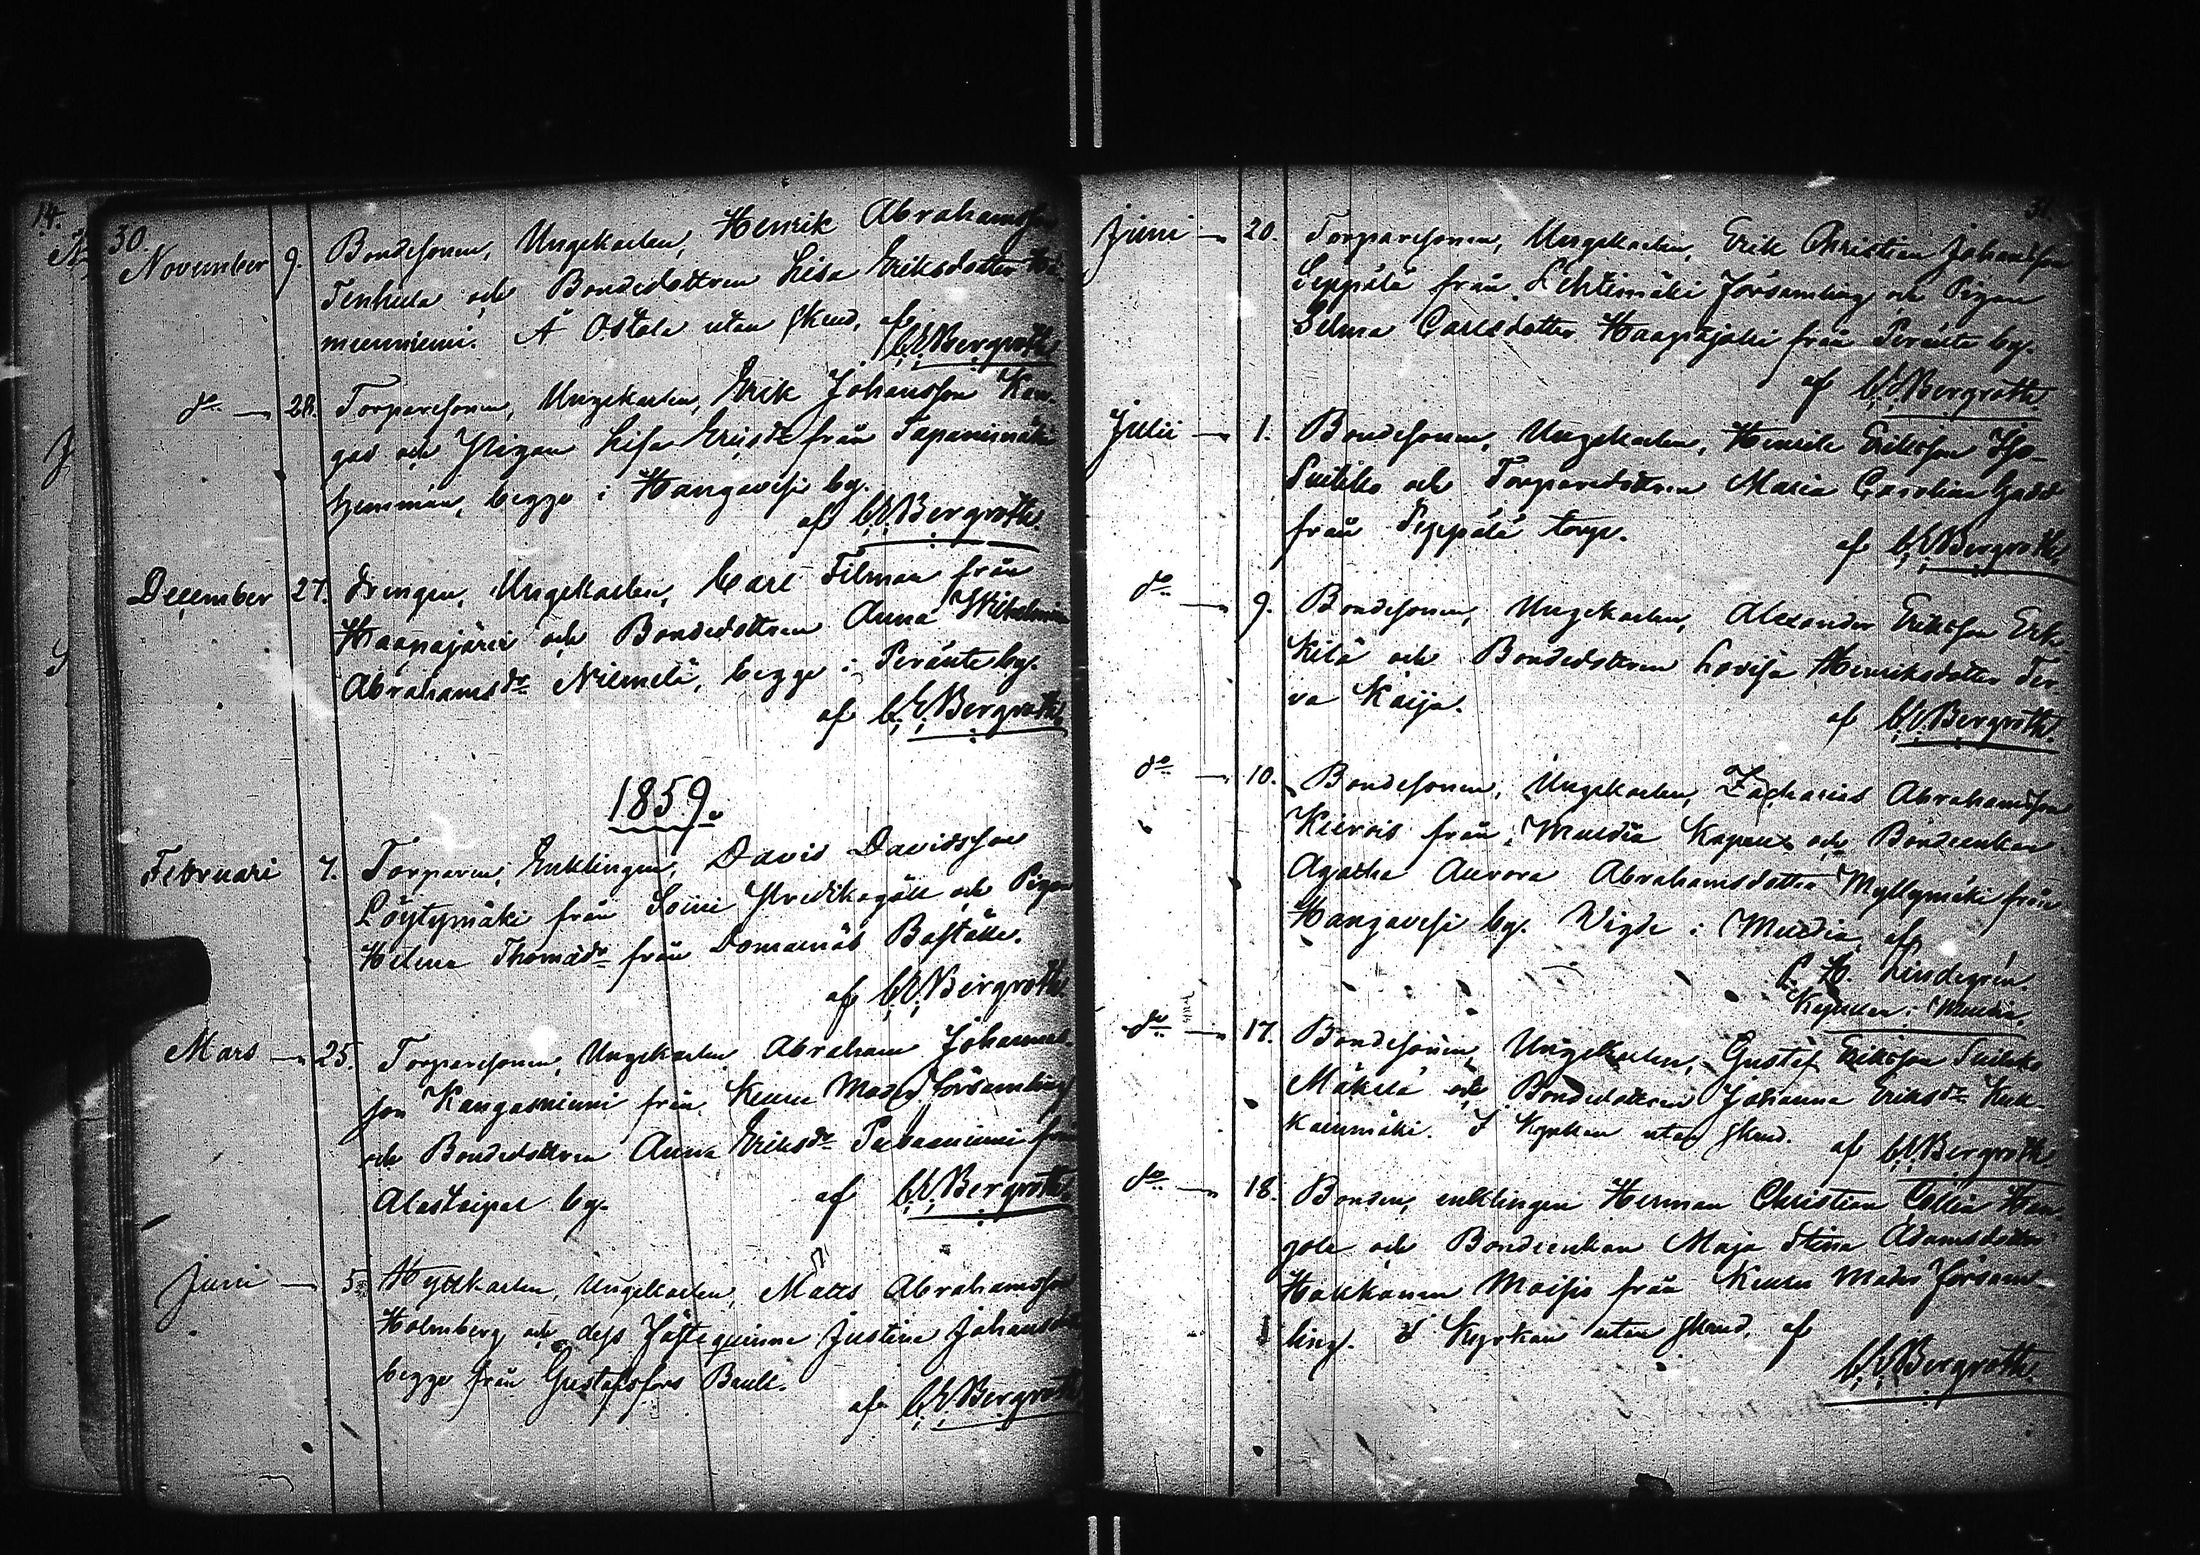 14.
30.
November 9. Bondesonen, Ungekarlen, Henrik Abrahamsson
Tenhula och Bondedottren Lisa Eriksdotter
muuniemi. Å Ostola utan skrud, af
C.E.Bergroth.
do — 28. Torparesonen, Ungekarlen, Erik Johansson Kan-
gas och Pigan Lisa Eriksdr från Tapanimäki
hemman, begge i Hangavesi by.
af C.E.Bergroth.
December 27. Drengen, Ungekarlen, Carl Filman från
Haapajärvi och Bondedottren Anna Wilhelmina
Abrahamsdr Niemelä, begge i Peränte by.
af C.E.Bergroth.
1859.
Februari 7. Torparen, Enklingen, David Davidsson
Löytymäki från Soini och Pigan
Helena Thomasdr från Domarnäs Boställe.
af C.E.Bergroth.
Mars — 25. Torparesonen, Ungekarlen Abraham Johannes-
son Kangasniemi från Keuru Moder församling
och Bondedottren Anna Eriksdr från
by. af C.E.Bergroth.
Juni — 5. Hyttkarlen, Ungekarlen, Matts Abrahamsson
Holmberg och dess Fästeqvinna Justina Johansdr
begge från Gustafsfors Bruk.
af C.E.Bergroth.
31.
Juni — 20. Torparesonen, Ungekarlen, Erik Christian Johansson
Seppälä från Lehtimäki församling och Pigan
Selma Carlsdotter Haapajoki från Peränte by.
af C.E.Bergroth.
Julii — 1. Bondesonen, Ungekarlen, Henrik Eriksson Iso-
Suikko och Torparedottren Maria Carolina
från Seppälä torp.
af C.E.Bergroth.
do — 9. Bondesonen, Ungekarlen, Alexander Eriksson Erk-
kilä och Bondedottren Lovisa Henriksdotter Ter-
va Kaija.
af C.E.Bergroth.
do — 10. Bondesonen, Ungekarlen, Zacharias Abrahamsson
från Multia Kapell och Bondeenkan
Agatha Aurora Abrahamsdotter Myllymäki från
Hangavesi by. Vigde i Multia, af
C. H. Lindegrén.
i Multia.
do — 17. Bondesonen, Ungekarlen, Gustaf Eriksson Suikko
Mäkelä och Bondedottren Johanna Eriksdr Kuk-
kaismäki. I Kyrkan utan skrud.
af C.E.Bergroth.
do — 18. Bonden, enklingen Herman Christian Collin Han-
gola och Bondeenkan Maja Stina Adamsdotter
Hakkanen Moisio från Keuru Moder församl-
ling. I Kyrkan utan skrud, af
C.E.Bergroth.